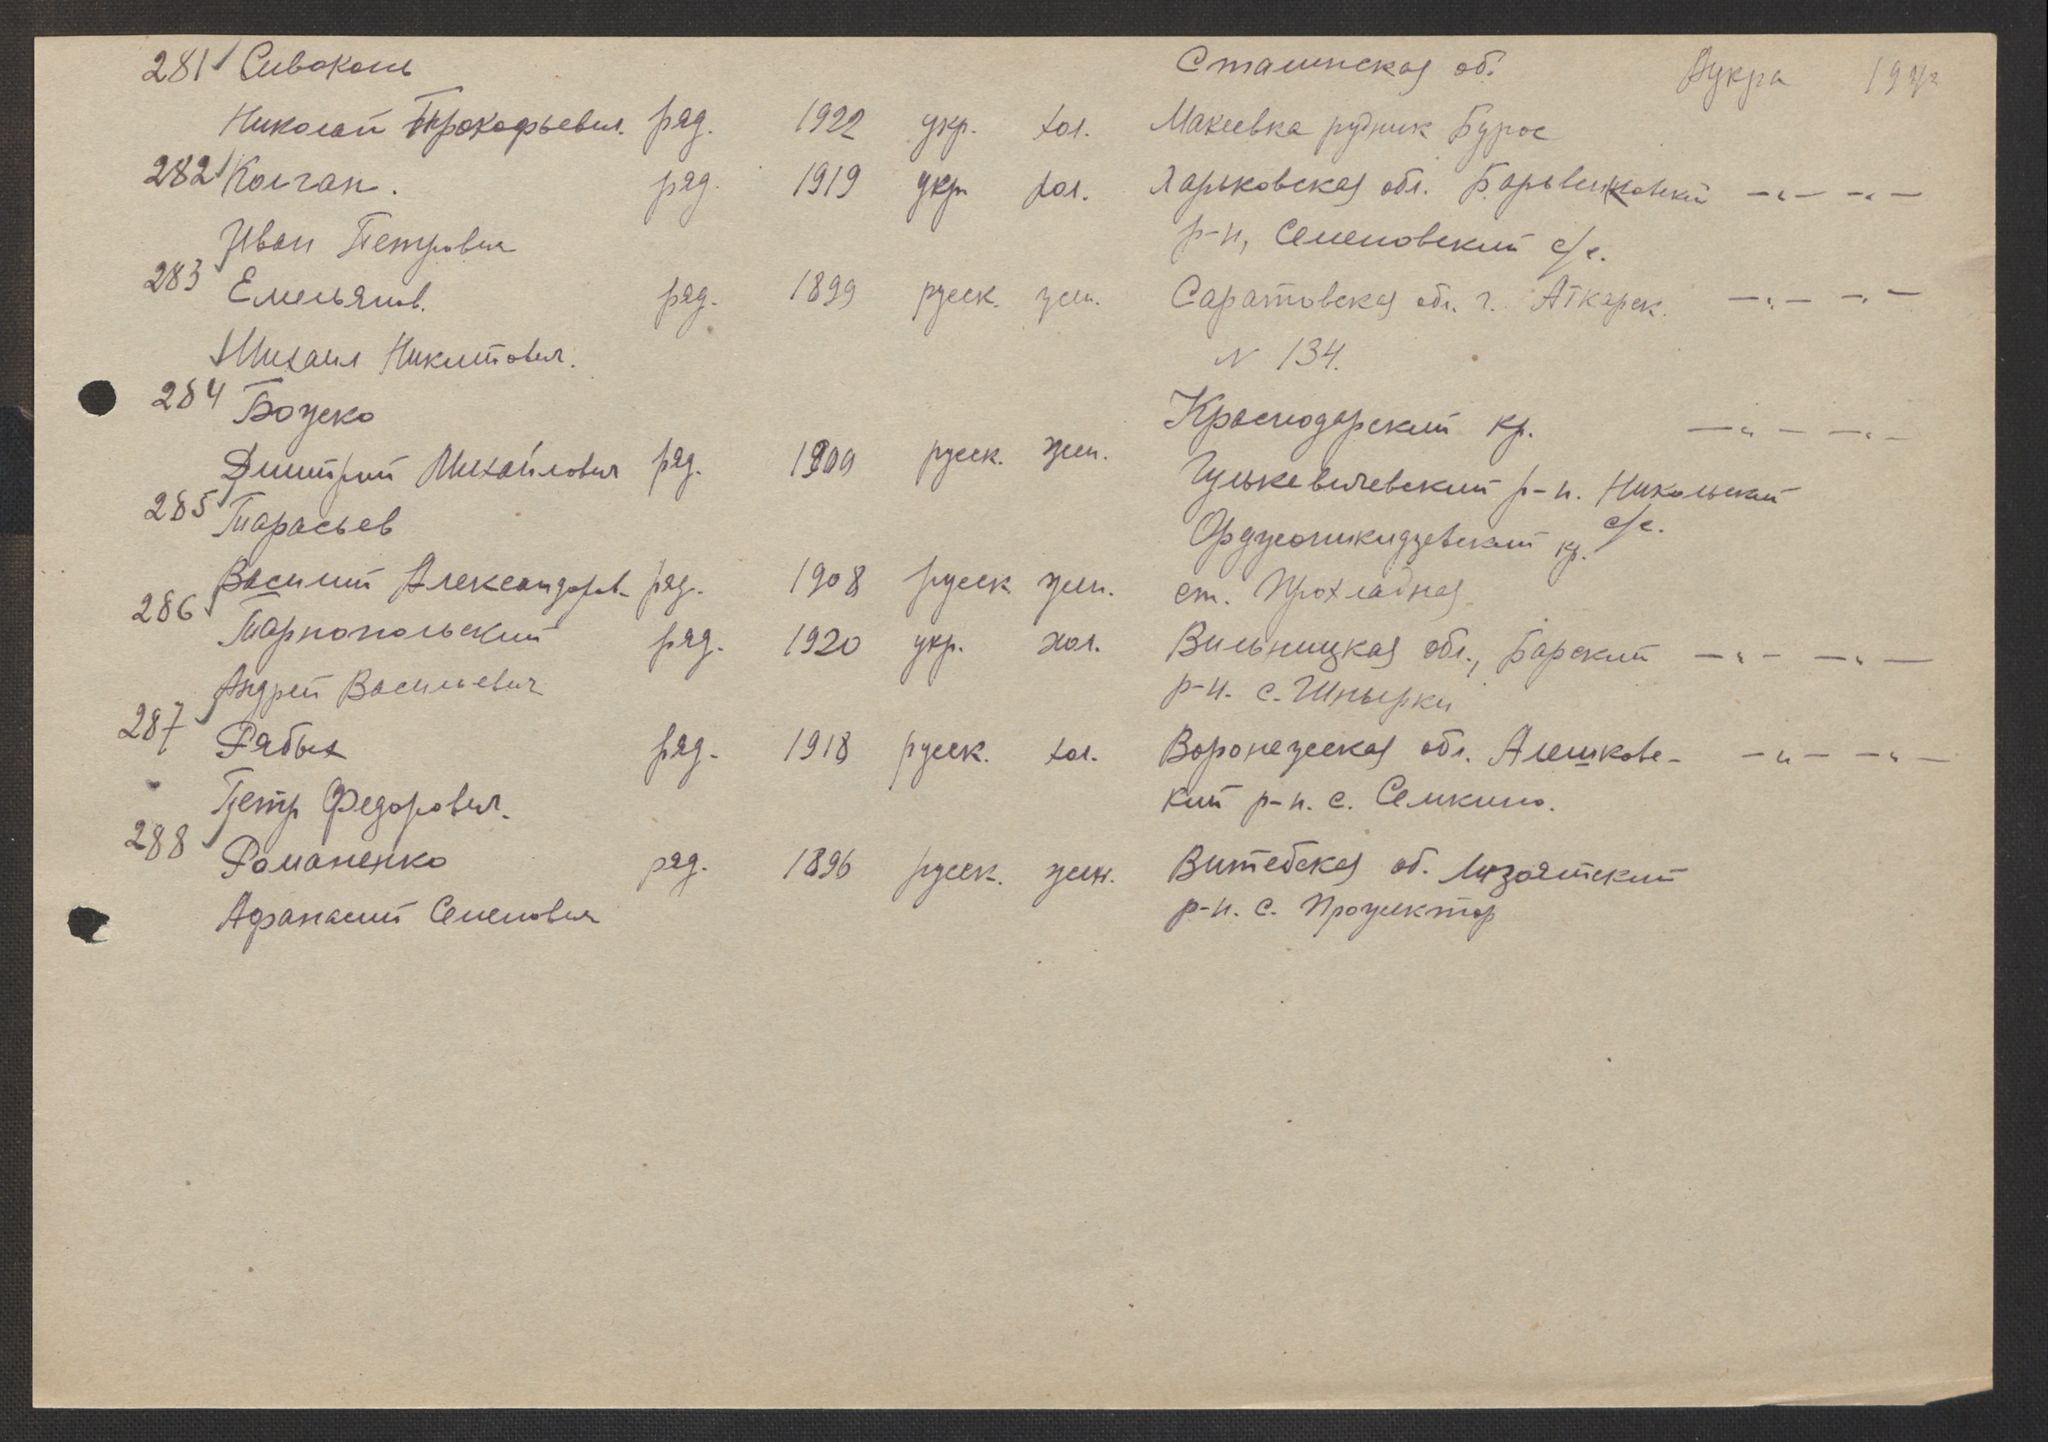 281 Сивоконь Сталинская об. Дукра
Николай Прокофьевич. ряд. 1922 укр. хол. Макеевка рудник Бурос
282 Колган. ряд. 1919 укр. хол. Харьковская обл. Барвенковский —„— —„—
Иван Петрович р-н, Семеновский с/с.
283 Емельянов. ряд. 1899 русск. жен. Саратовская обл. г. Аткарск. —„— —„—
Михаил Никитович. N 134.
284 Боуско Краснодарский кр. —„— —„—
Дмитрий Михайлович ряд. русск. жен. Гулькевичевский р-н. Никольский с/с.
285 Тарасьев Орджоникидзевский кр.
Василий Александров. ряд. 1908 русск жен. ст. Прохладная
286 Тарнопольский ряд. 1920 укр. хол. Вильницкая обл., Барский —„— —„—
Андрей Васильевич р-н. с. Шпырки
287 Рябых ряд. 1918 русск. хол. Воронежская обл. Алешковс- —„— —„—
Петр Федорович. кий р-н. с. Семкино.
288 Романенко ряд. 1896 русск. жен. Витебская об. Лизоятский
Афанасий Семенович р-н. с. Прожектор